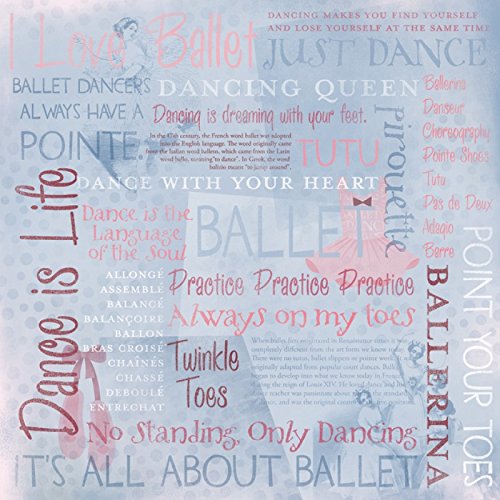 I Love Ballet
DANCING MAKES YOU FIND YOURSELF
AND LOSE YOURSELF AT THE SAME TIME
JUST DANCE
BALLET DANCERS
ALWAYS HAVE A
POINTE.
DANCING QUEEN
Dancing is dreaming with your feet.
In the 17th century, the French word ballet was adopted
into the English language. The word originally came
from the Italian word balletto, which came from the Latin
word ballo, meaning "to dance". In Greek, the word
ballizo meant "to jump around".
TUTU
Pirouette
Ballerina
Danseur
Choreography
Pointe Shoes
Tutu
Pas de Deux
Adagio
Barre
DANCE WITH YOUR HEART
Dance is Life
Dance is the
Language
of the Soul
BALLET
ALLONGÉ
ASSEMBLÉ
BALANCÉ
BALANÇOIRE
BALLON
BRAS CROISÉ
CHAÎNÉS
CHASSÉ
DEBOULÉ
ENTRECHAT
Practice Practice Practice
Always on my toes
Twinkle
Toes
When ballet first originated in Renaissance times it was
completely different from the art form we know
There were no tutus, ballet slippers or pointe work
originally adapted from popular court dances. Ballet
began to develop into what we know today in France
during the reign of Louis XIV. He loved dance and
teacher was passionate about setting the standard
and was the origination of the
BALLERINA
POINT YOUR TOES
No Standing, Only Dancing
IT'S ALL ABOUT BALLET.